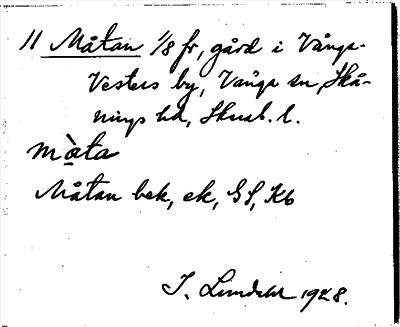 11 Måtan 1/8 fr, gård i Vånga-
Vesters by, Vånga sn, Skå-
nings hd, Skarab. l.
mȧ̀ta
Måtan bek, ek, GS, Kb
I. Lundahl 1928.